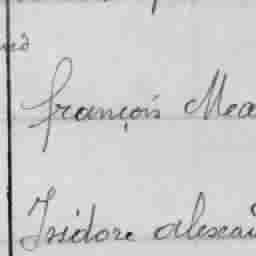 françois Mea
Isidore alexan